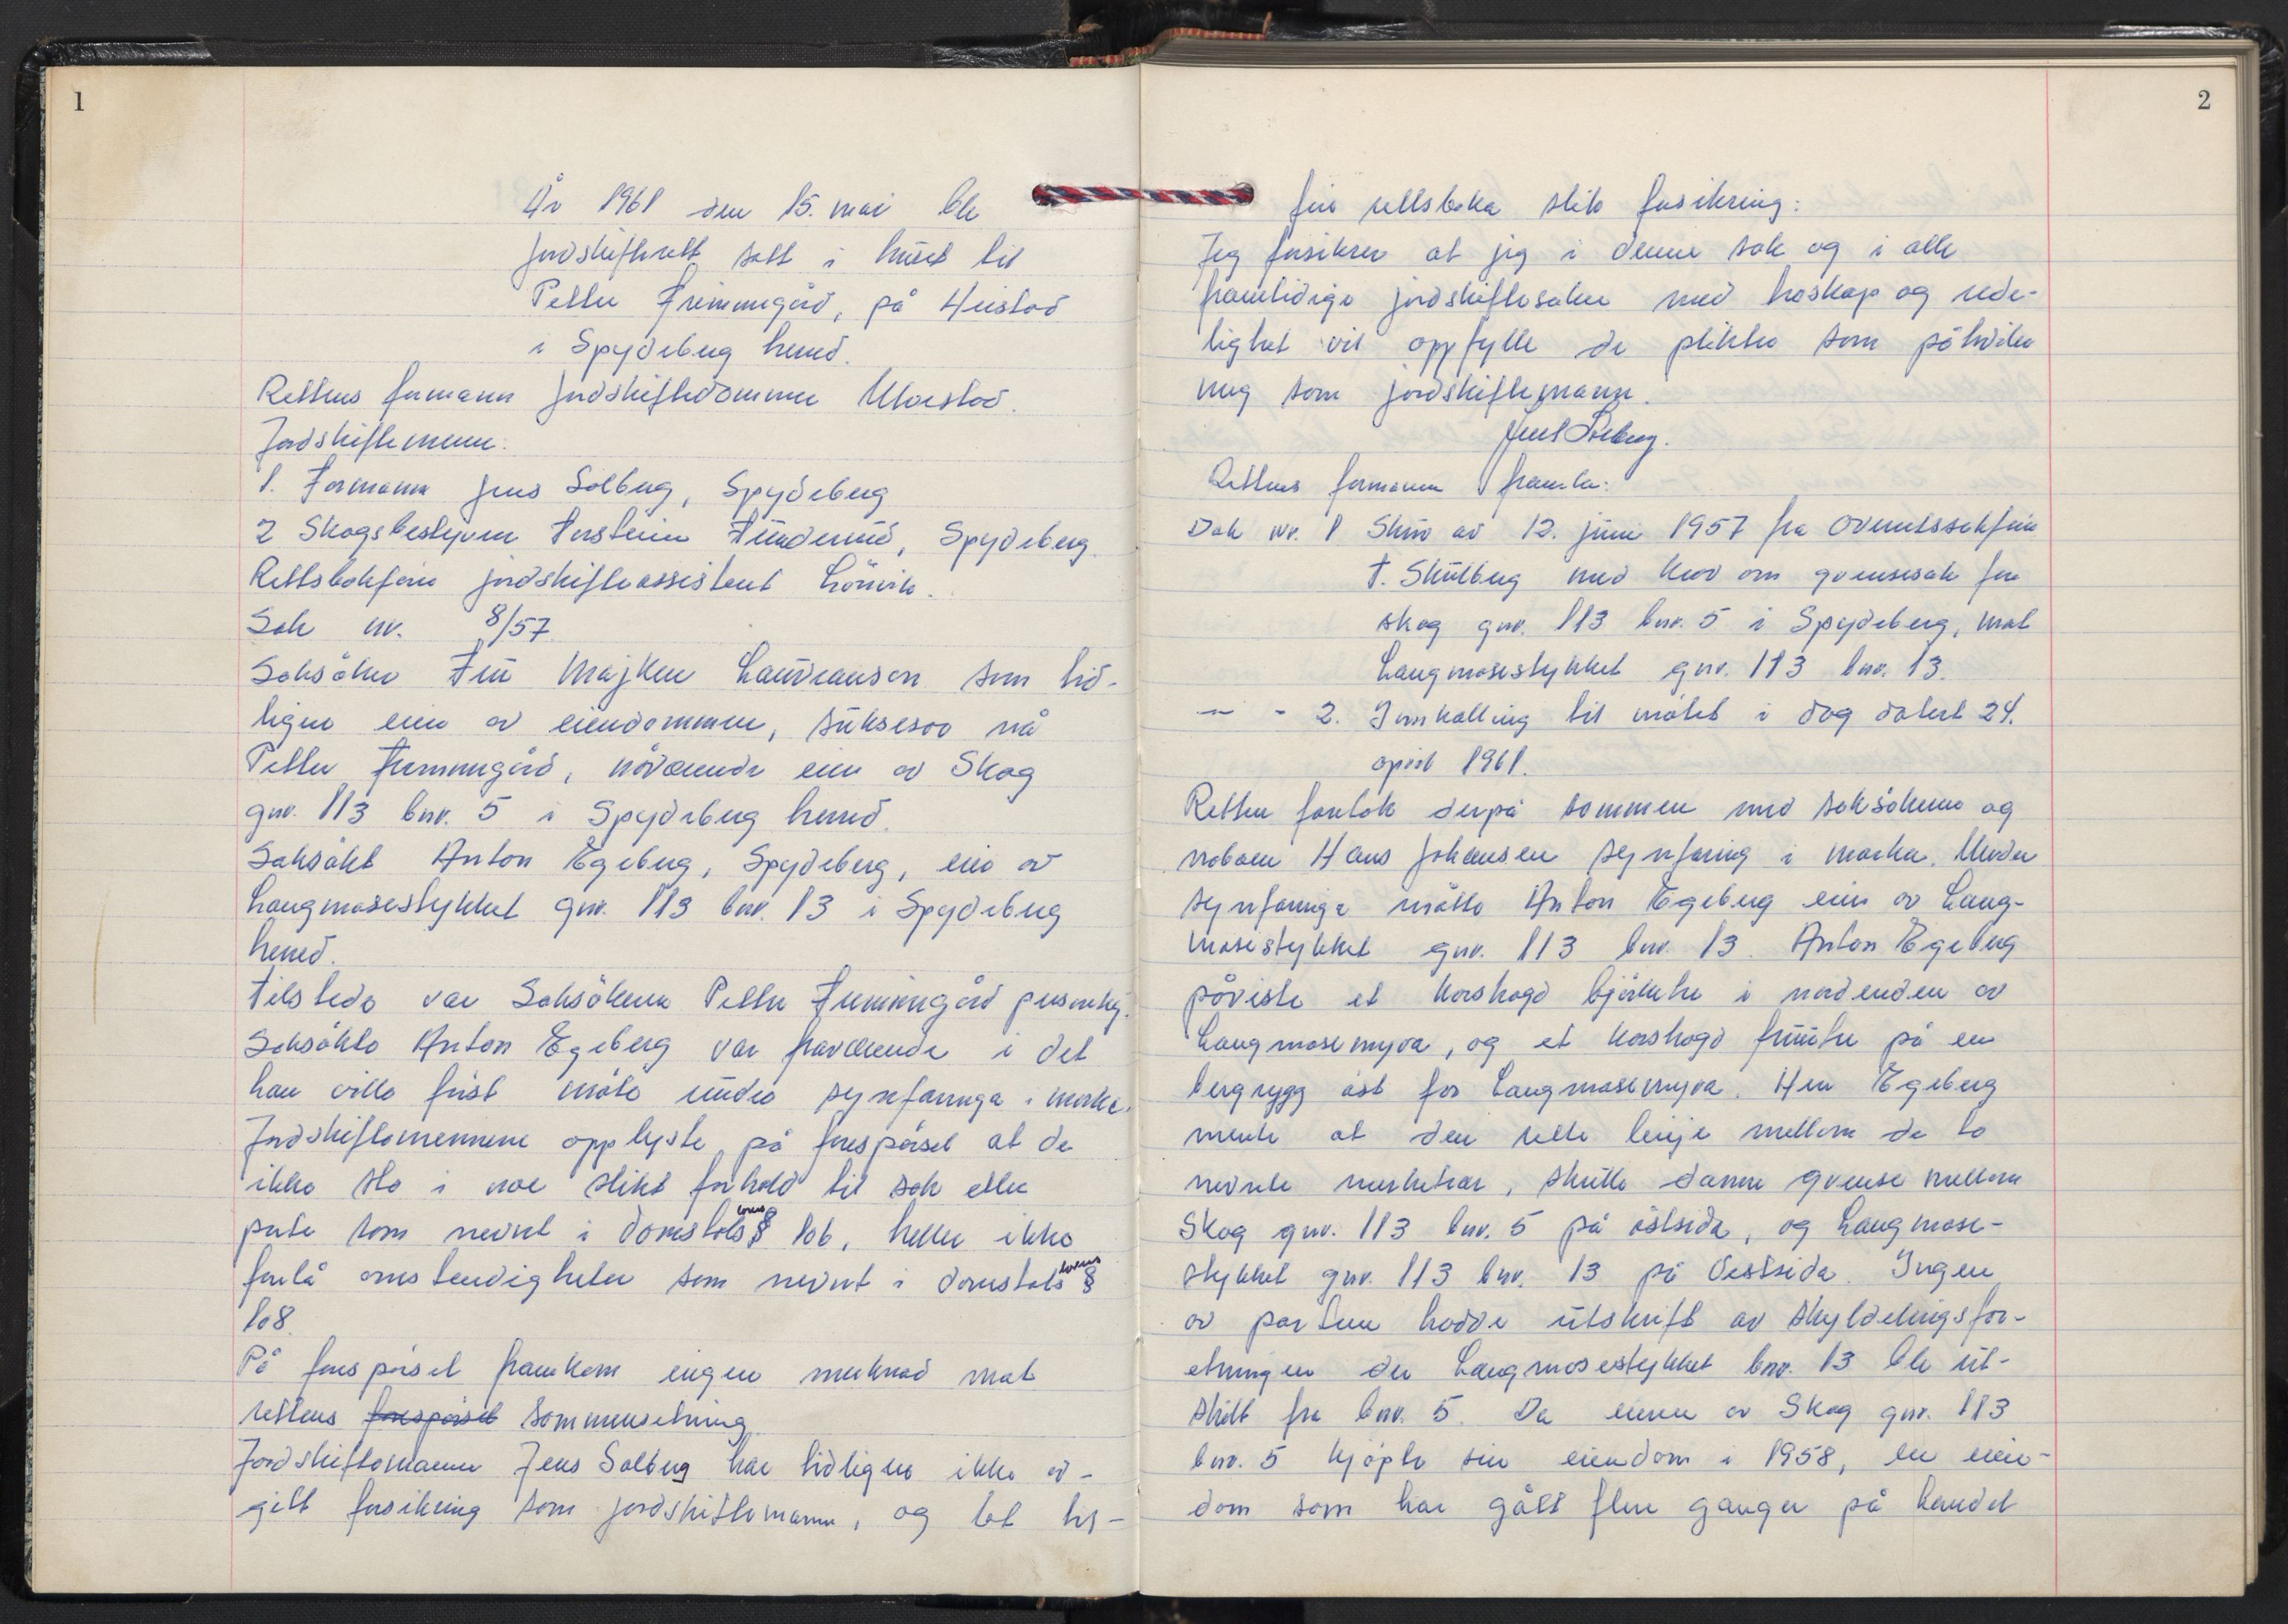 1
År 1961 den 15. mai ble
jordskifterett satt i huset til
Petter Fremmegård, på Heistad
i Spydeberg herred.
Rettens formann jordskiftedommer Ulvestad.
Jordskiftemenn:
1. Formann Jens Solberg, Spydeberg
2 Skogsbestyrer Torstein Tunderud, Spydeberg.
Rettsbokfører jordskifteassistent Lönvik.
Sak nr. 8/57
Saksöker Fru Majken Lauvransen som tid-
ligere eier av eiendommen, suksesor nå
Petter Fremmegård, nåværende eier av Skog
gnr. 113 bnr. 5 i Spydeberg herred.
Saksökt Anton Egeberg, Spydeberg, eier av
Langmosestykket gnr. 113 bnr. 13 i Spydeberg
herred.
Tilstede var Saksökeren Petter Fremmegård personlig.
Saksökte Anton Egeberg var fraværende i det
han ville först möte under synfaringa i marka.
Jordskiftemennene opplyste på forespörsel at de
ikke sto i noe slikt forhold til sak eller
parter som nevnt i domstolslovens § 106, heller ikke
forelå omstendigheter som nevnt i domstolslovens §
108.
På forespörsel framkom ingen merknad mot
rettens forespörsel sammensetning.
Jordskiftemann Jens Solberg har tidligere ikke av-
gitt forsikring som jordskiftemann, og lot til-
2
före rettsboka slik forsikring:
Jeg forsikrer at jeg i denne sak og i alle
framtidige jordskiftesaker med troskap og rede-
lighet vil oppfylle de plikter som påhviler
meg som jordskiftemann.
Jens Solberg.
Rettens formann framla:
Dok nr. 1 Skriv av 12. juni 1957 fra overrettssakförer
T. Skulberg med krav om grensesak for
skog gnr. 113 bnr. 5 i Spydeberg, mot
Langmosestykket gnr. 113 bnr. 13.
— - 2. Innkalling til mötet i dag datert 24.
april 1961.
Retten foretok derpå sammen med saksökeren og
naboen Hans Johansen synfaring i marka. Under
synfaringa mötte Anton Egeberg eier av Lang-
mosestykket gnr. 113 bnr. 13. Anton Egeberg
påviste et korshogd björketre i nordenden av
Langmosemyra, og et korshogd furutre på en
bergrygg öst for Langmosemyra. Herr Egeberg
mente at den rette linje mellom de to
nevnte merketrær, skulle danne grense mellom
Skog gnr. 113 bnr. 5 på östsida, og Langmose-
stykket gnr. 113 bnr. 13 på Vestsida. Ingen
av partene hadde utskrift av skyldelingsfor-
etningen der Langmosestykket bnr. 13 ble ut-
skilt fra bnr. 5. Da eieren av Skog gnr. 113
bnr. 5 kjöpte sin eiendom i 1958, en eien-
dom som har gått flere ganger på handel